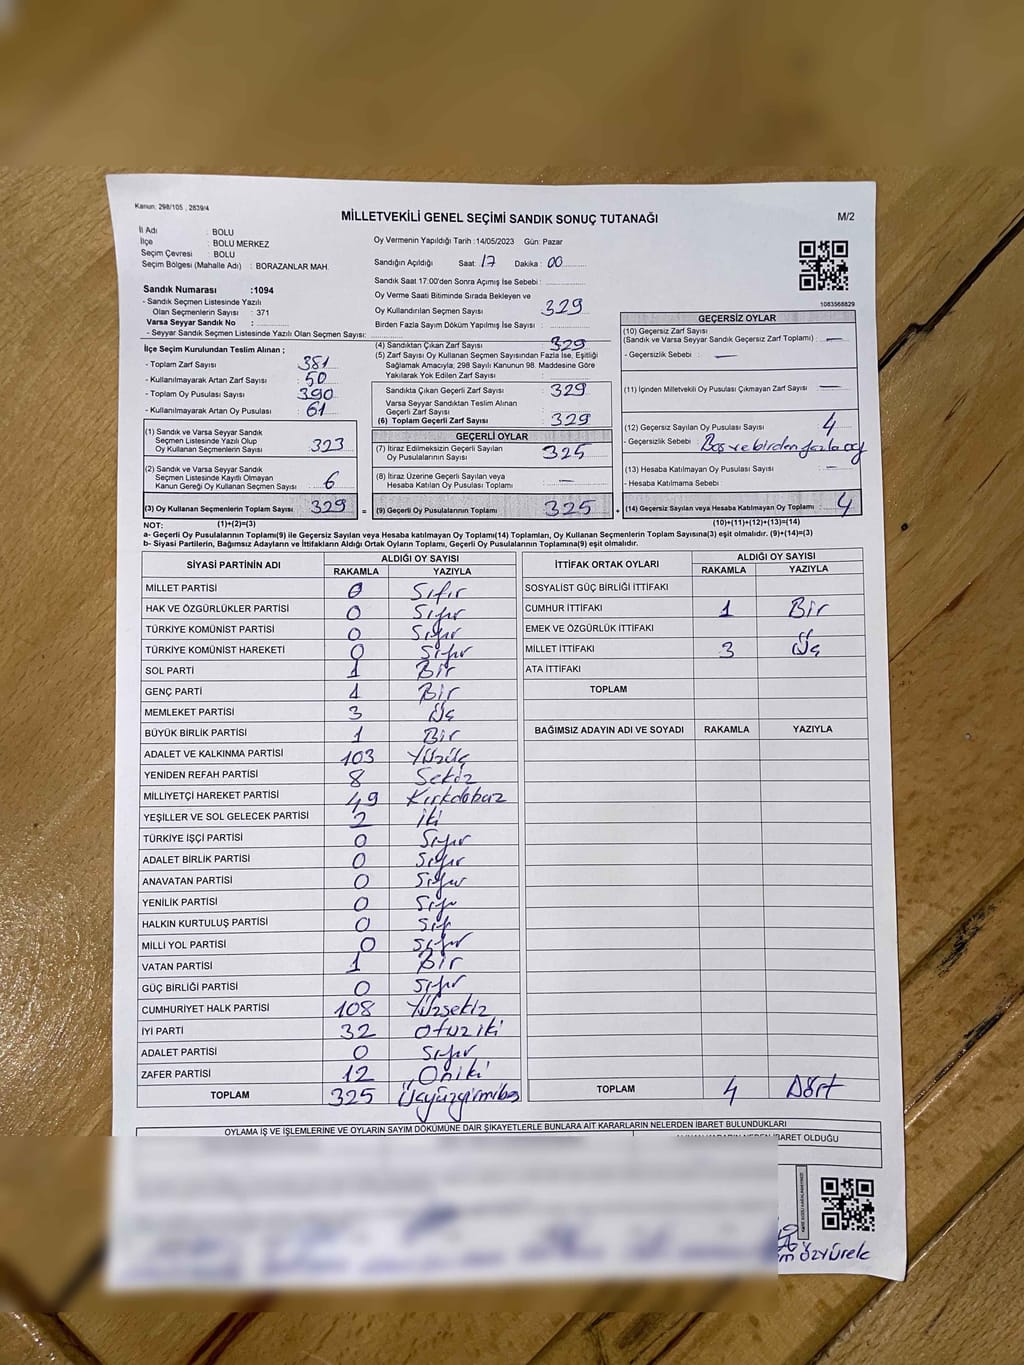 Kanun: 298/105 , 2839/4
MİLLETVEKİLİ GENEL SEÇİMİ SANDIK SONUÇ TUTANAĞI
M/2
İl Adı : BOLU
İlçe : BOLU MERKEZ
Seçim Çevresi : BOLU
Seçim Bölgesi (Mahalle Adı) : BORAZANLAR MAH.
Sandık Numarası :1094
- Sandık Seçmen Listesinde Yazılı
Olan Seçmenlerin Sayısı : 371
Varsa Seyyar Sandık No :
- Seyyar Sandık Seçmen Listesinde Yazılı Olan Seçmen Sayısı:
Oy Vermenin Yapıldığı Tarih :14/05/2023 Gün: Pazar
Sandığın Açıldığı Saat: 17 Dakika : 00
Sandık Saat 17:00'den Sonra Açılmış İse Sebebi :
Oy Verme Saati Bitiminde Sırada Bekleyen ve
Oy Kullandırılan Seçmenlerin Sayısı : 329
Birden Fazla Sayım Döküm Yapılmış İse Sayısı :
1083568829
İlçe Seçim Kurulundan Teslim Alınan ;
- Toplam Zarf Sayısı : 381
- Kullanılmayarak Artan Zarf Sayısı : 50
- Toplam Oy Pusulası Sayısı : 390
- Kullanılmayarak Artan Oy Pusulası : 61
(1) Sandık ve Varsa Seyyar Sandık
Seçmen Listesinde Yazılı Olup
Oy Kullanan Seçmenlerin Sayısı : 323
(2) Sandık ve Varsa Seyyar Sandık
Seçmen Listesinde Kayıtlı Olmayan
Kanun Gereği Oy Kullanan Seçmen Sayısı : 6
(3) Oy Kullanan Seçmenlerin Toplam Sayısı : 329
(4) Sandıktan Çıkan Zarf Sayısı : 329
(5) Zarf Sayısı Oy Kullanan Seçmen Sayısından Fazla İse, Eşitliği
Sağlamak Amacıyla, 298 Sayılı Kanunun 98. Maddesine Göre
Yakılarak Yok Edilen Zarf Sayısı :
Sandıkta Çıkan Geçerli Zarf Sayısı : 329
Varsa Seyyar Sandıktan Teslim Alınan
Geçerli Zarf Sayısı :
(6) Toplam Geçerli Zarf Sayısı : 329
GEÇERLİ OYLAR
(7) İtiraz Edilmeksizin Geçerli Sayılan
Oy Pusulalarının Sayısı : 325
(8) İtiraz Üzerine Geçerli Sayılan veya
Hesaba Katılan Oy Pusulası Toplamı : —
= (9) Geçerli Oy Pusulalarının Toplamı : 325
GEÇERSİZ OYLAR
(10) Geçersiz Zarf Sayısı
(Sandık ve Varsa Seyyar Sandık Geçersiz Zarf Toplamı) : —
- Geçersizlik Sebebi : —
(11) İçinden Milletvekili Oy Pusulası Çıkmayan Zarf Sayısı : —
(12) Geçersiz Sayılan Oy Pusulası Sayısı : 4
- Geçersizlik Sebebi : Boş ve birden fazla oy
(13) Hesaba Katılmayan Oy Pusulası Sayısı : —
- Hesaba Katılmama Sebebi :
+ (14) Geçersiz Sayılan veya Hesaba Katılmayan Oy Toplamı : 4
NOT: (1)+(2)=(3) (10)+(11)+(12)+(13)=(14)
a- Geçerli Oy Pusulalarının Toplamı(9) ile Geçersiz Sayılan veya Hesaba katılmayan Oy Toplamı(14) Toplamları, Oy Kullanan Seçmenlerin Toplam Sayısına(3) eşit olmalıdır. (9)+(14)=(3)
b- Siyasi Partilerin, Bağımsız Adayların ve İttifakların Aldığı Ortak Oyların Toplamı, Geçerli Oy Pusulalarının Toplamına(9) eşit olmalıdır.
SİYASİ PARTİNİN ADI ALDIĞI OY SAYISI
RAKAMLA YAZIYLA
MİLLET PARTİSİ 0 Sıfır
HAK VE ÖZGÜRLÜKLER PARTİSİ 0 Sıfır
TÜRKİYE KOMÜNİST PARTİSİ 0 Sıfır
TÜRKİYE KOMÜNİST HAREKETİ 0 Sıfır
SOL PARTİ 1 Bir
GENÇ PARTİ 1 Bir
MEMLEKET PARTİSİ 3 Üç
BÜYÜK BİRLİK PARTİSİ 1 Bir
ADALET VE KALKINMA PARTİSİ 103 Yüzüç
YENİDEN REFAH PARTİSİ 8 Sekiz
MİLLİYETÇİ HAREKET PARTİSİ 49 Kırkdokuz
YEŞİLLER VE SOL GELECEK PARTİSİ 2 iki
TÜRKİYE İŞÇİ PARTİSİ 0 Sıfır
ADALET BİRLİK PARTİSİ 0 Sıfır
ANAVATAN PARTİSİ 0 Sıfır
YENİLİK PARTİSİ 0 Sıfır
HALKIN KURTULUŞ PARTİSİ 0 Sıf
MİLLİ YOL PARTİSİ 0 Sıfır
VATAN PARTİSİ 1 Bir
GÜÇ BİRLİĞİ PARTİSİ 0 Sıfır
CUMHURİYET HALK PARTİSİ 108 Yüzsekiz
İYİ PARTİ 32 Otuziki
ADALET PARTİSİ 0 Sıfır
ZAFER PARTİSİ 12 Oniki
TOPLAM 325 Üçyüzyirmibeş
İTTİFAK ORTAK OYLARI ALDIĞI OY SAYISI
RAKAMLA YAZIYLA
SOSYALİST GÜÇ BİRLİĞİ İTTİFAKI
CUMHUR İTTİFAKI 1 Bir
EMEK VE ÖZGÜRLÜK İTTİFAKI
MİLLET İTTİFAKI 3 Üç
ATA İTTİFAKI
TOPLAM
BAĞIMSIZ ADAYIN ADI VE SOYADI RAKAMLA YAZIYLA
TOPLAM 4 Dört
OYLAMA İŞ VE İŞLEMLERİNE VE OYLARIN SAYIM DÖKÜMÜNE DAİR ŞİKAYETLERLE BUNLARA AİT KARARLARIN NELERDEN İBARET BULUNDUKLARI
İBARET OLDUĞU
özyürek